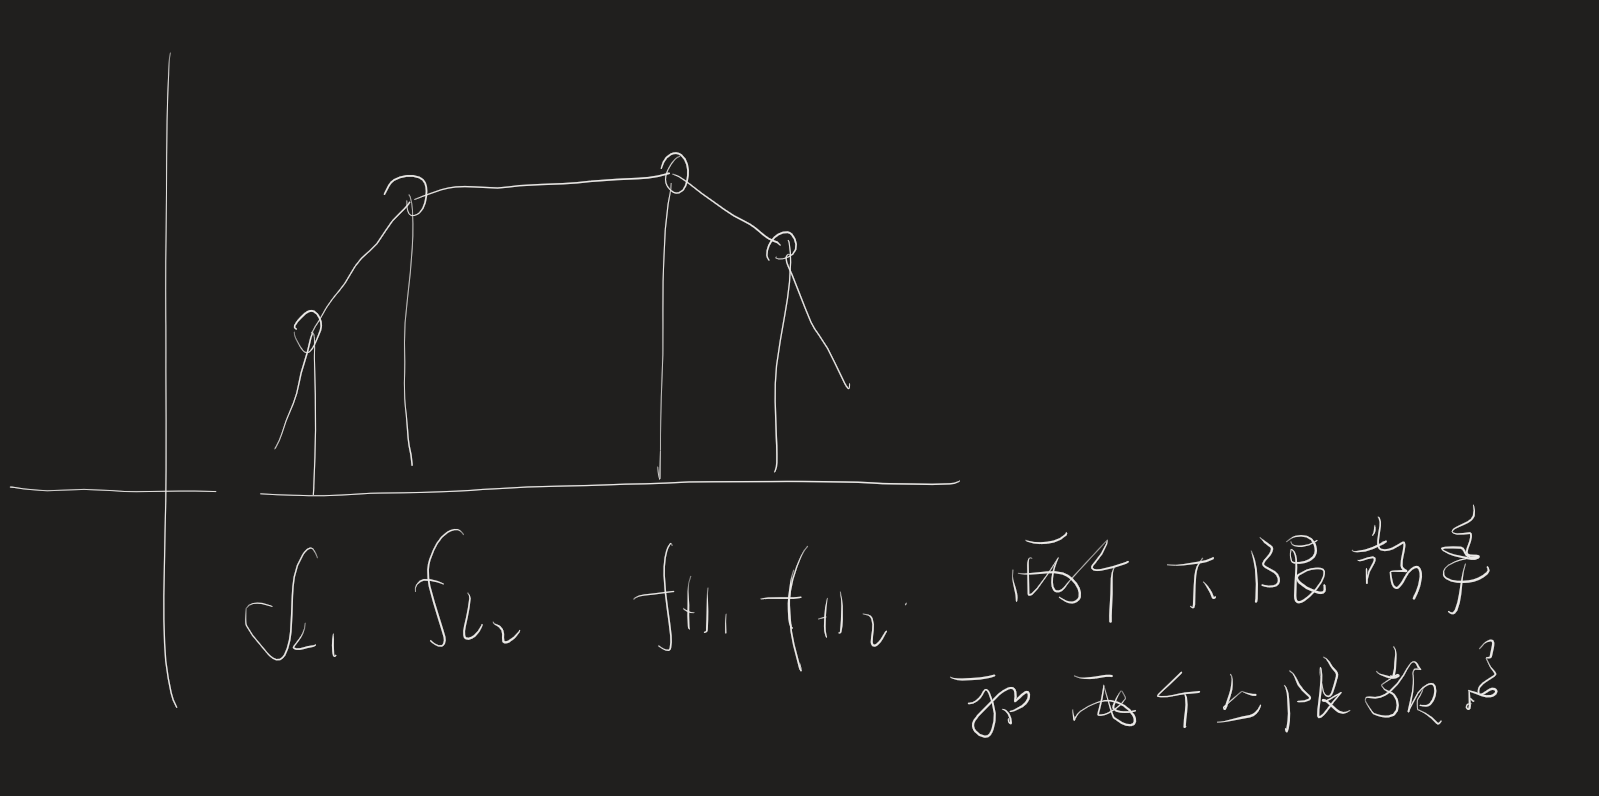 fL1 fL2 fH1 fH2
两个下限频率
和两个上限频率